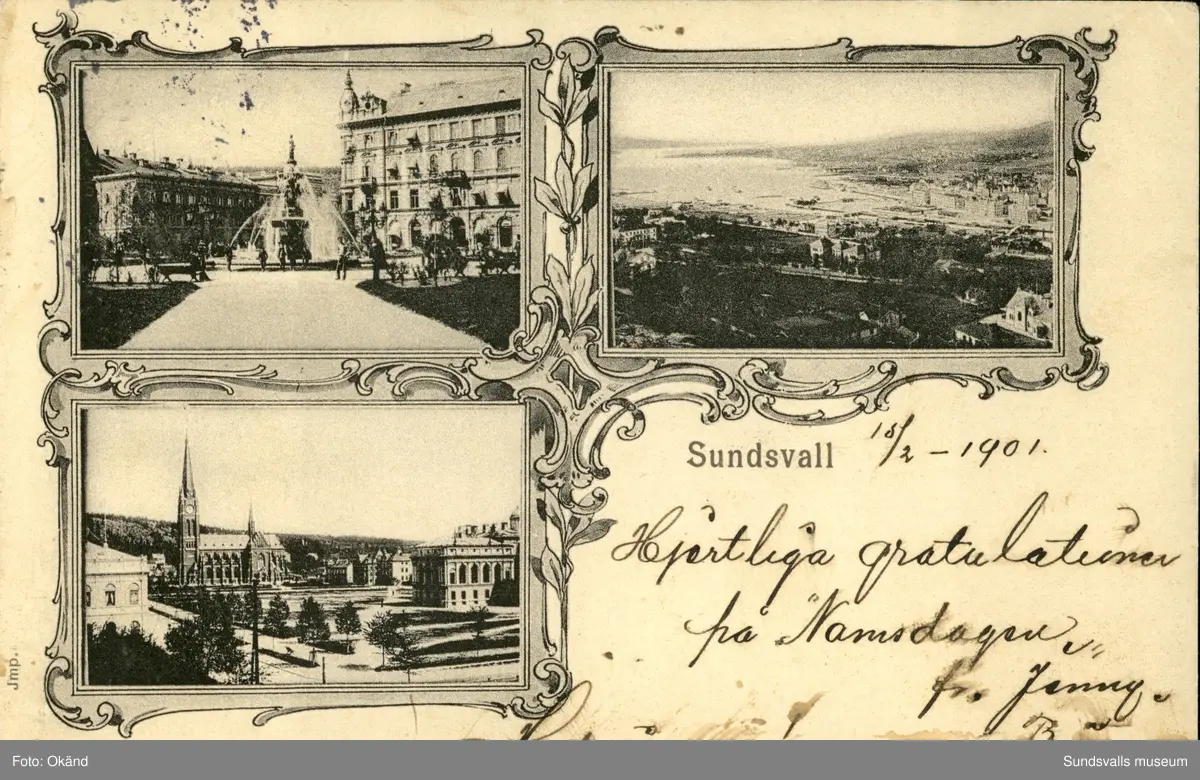 Sundsvall 18/2 - 1901.
Hjertliga gratulationer
på "Namsdagen„
fr. Jenny.
Jmp.
Foto: Okänd
Sundsvalls museum